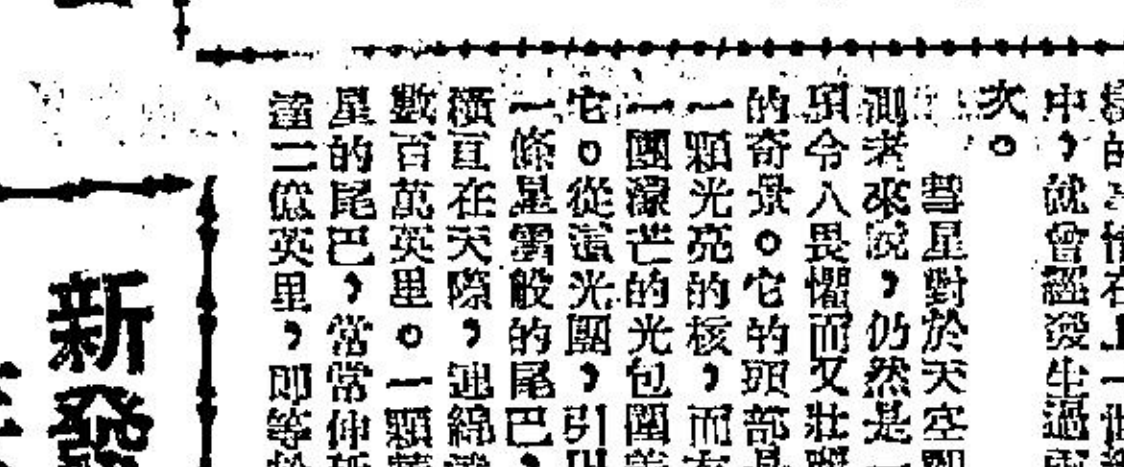 的事情在上一世
中，就會經發生過
次。
彗星對於天空
測者來說，仍然是一
項令人畏懼而又壯
的奇景。它的頭部是
一顆光亮的核，而
一團濛芒的光包圍着
它。從這光團，引出
一條星雲般的尾巴，
橫亘在天際，連綿
數百萬英里。一顆
星的尾巴，常常伸
達二億英里，即等於
新發